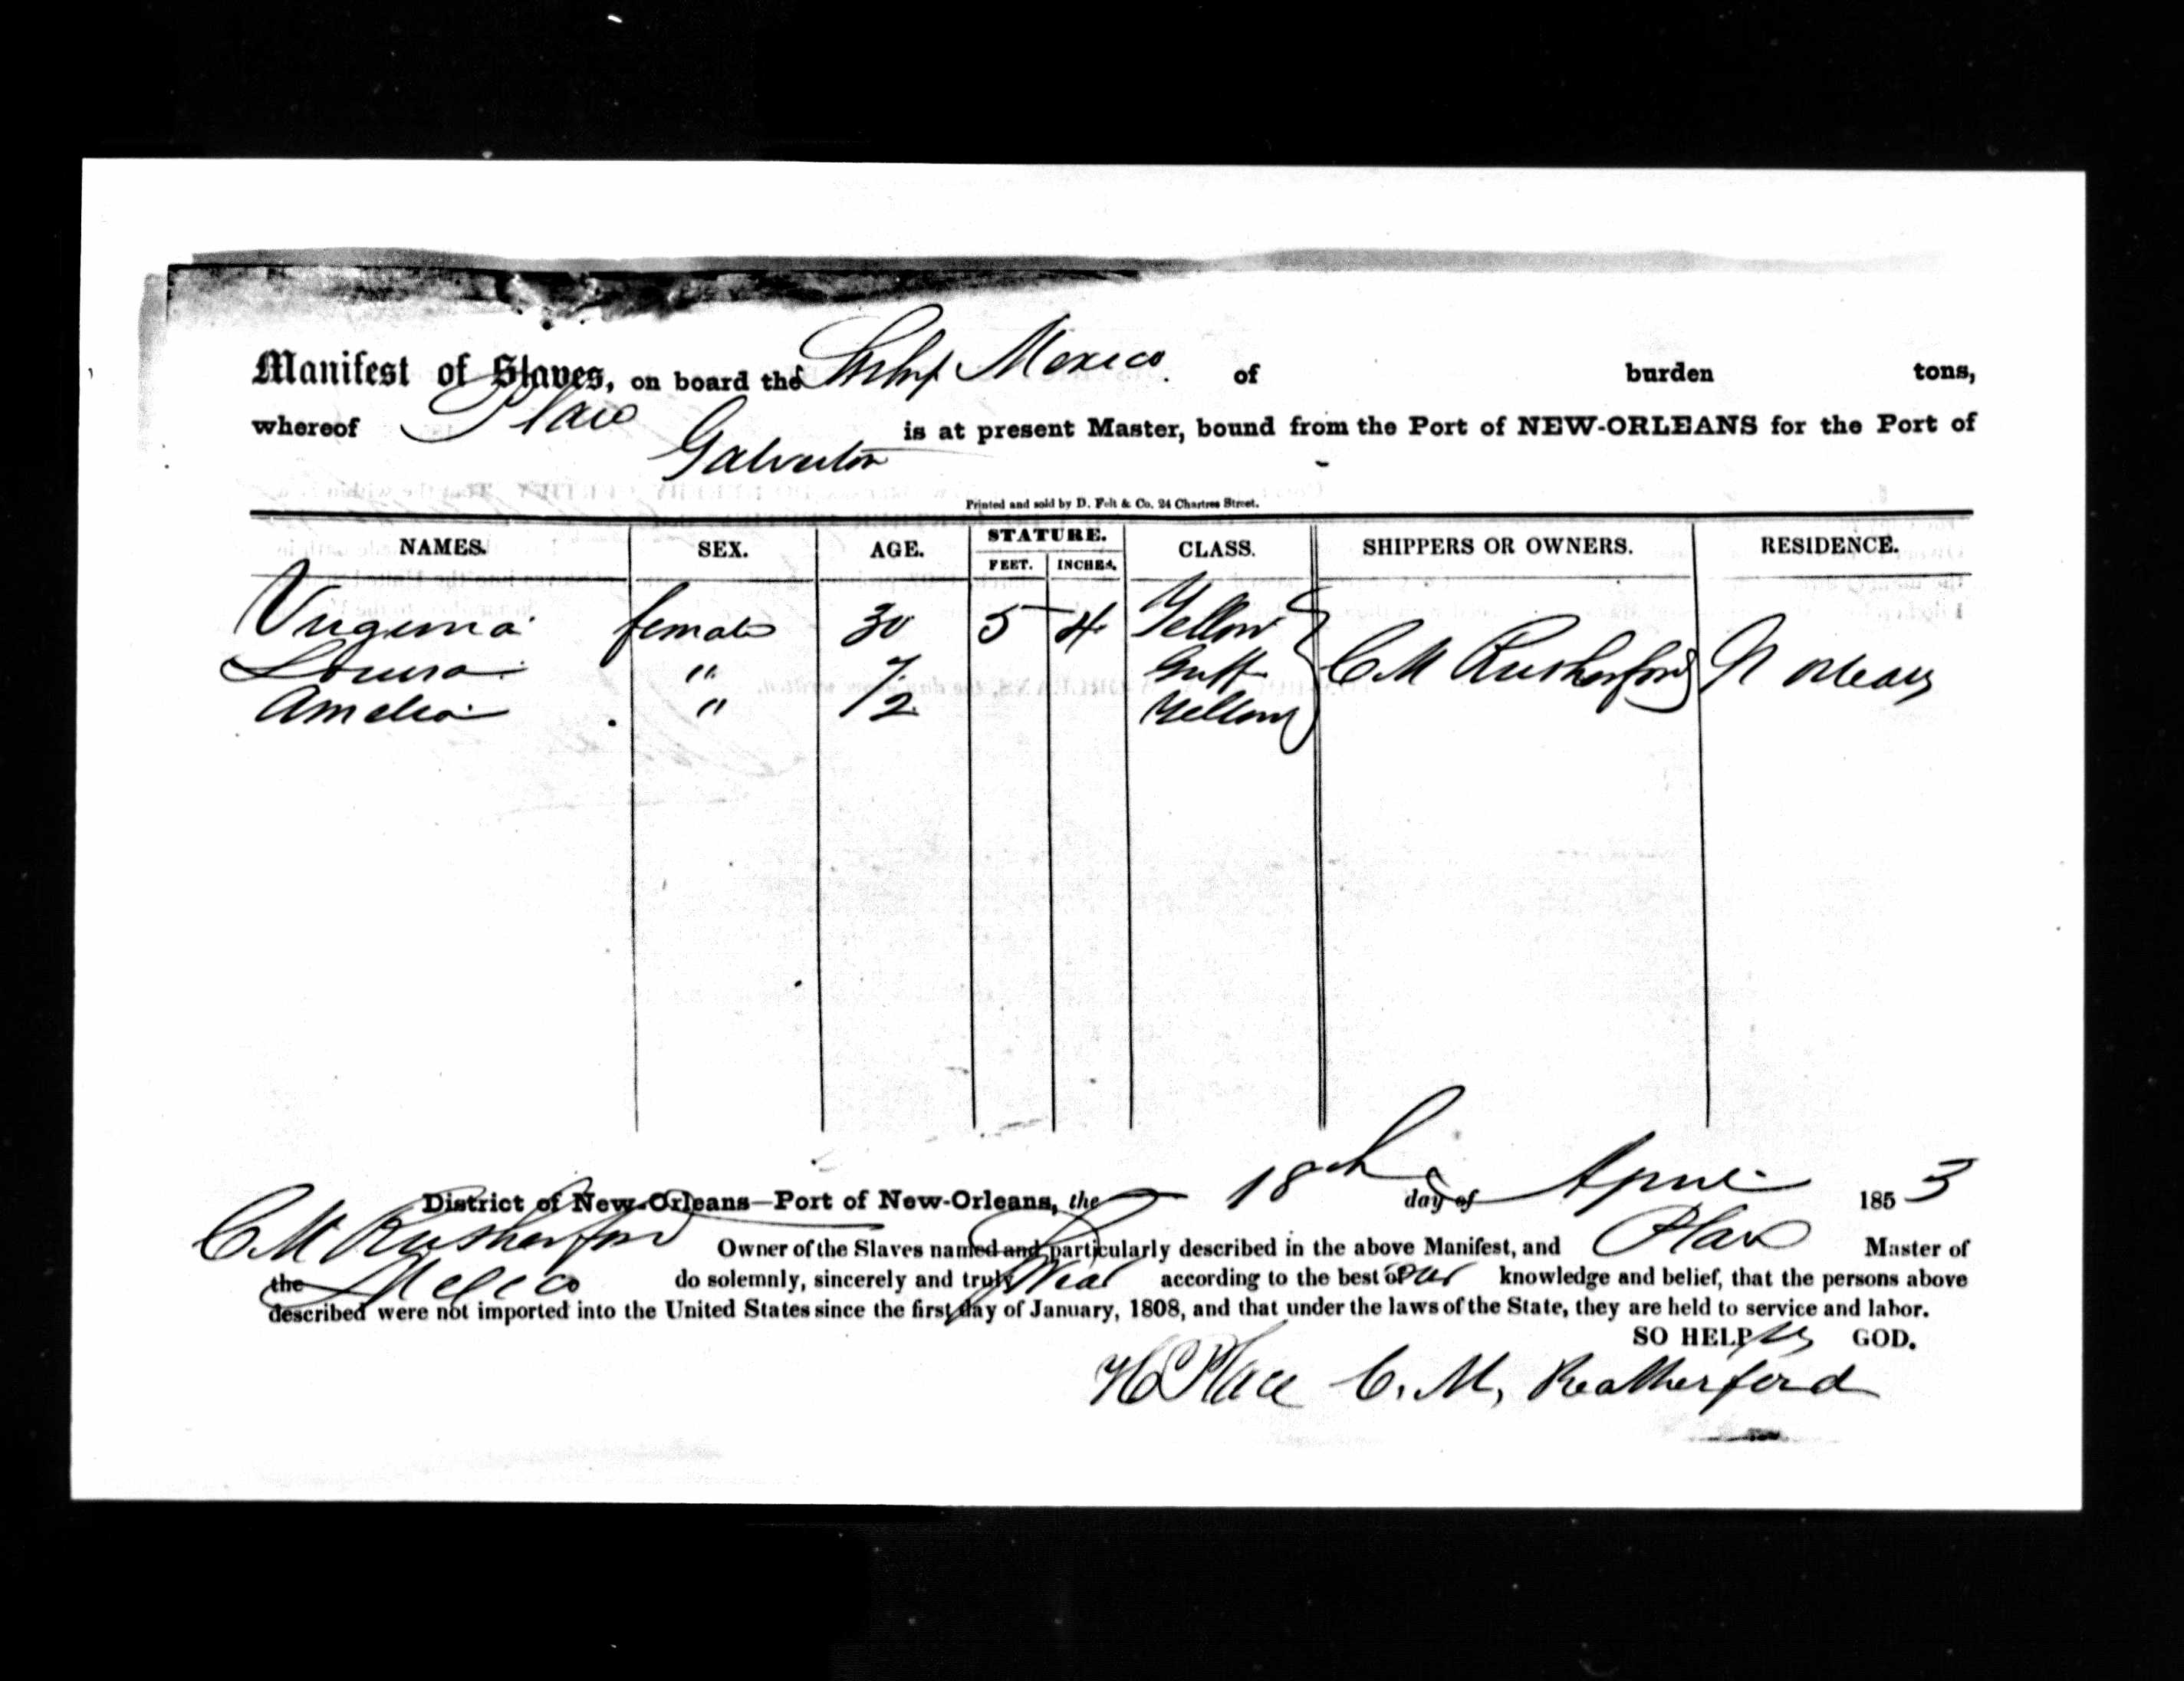 Manifest of Slaves, on board the Mexico of burden tons,
whereof Place is at present Master, bound from the Port of NEW-ORLEANS for the Port of
Galveston
Printed and sold by D. Felt & Co. 24 Chartres Street.
NAMES. SEX. AGE. STATURE. FEET. INCHES. CLASS. SHIPPERS OR OWNERS. RESIDENCE.
Virginia female 30 5 4 Yellow
Louisa " 7 C M Rutherford N Orleans
Amelia " Yellow
District of New-Orleans—Port of New-Orleans, the 18th day of April 1853
C M Rutherford Owner of the Slaves named and particularly described in the above Manifest, and Place Master of
the Mexico do solemnly, sincerely and truly swear according to the best of our knowledge and belief, that the persons above
described were not imported into the United States since the first day of January, 1808, and that under the laws of the State, they are held to service and labor.
SO HELP us GOD.
H Place C. M, Reatherford